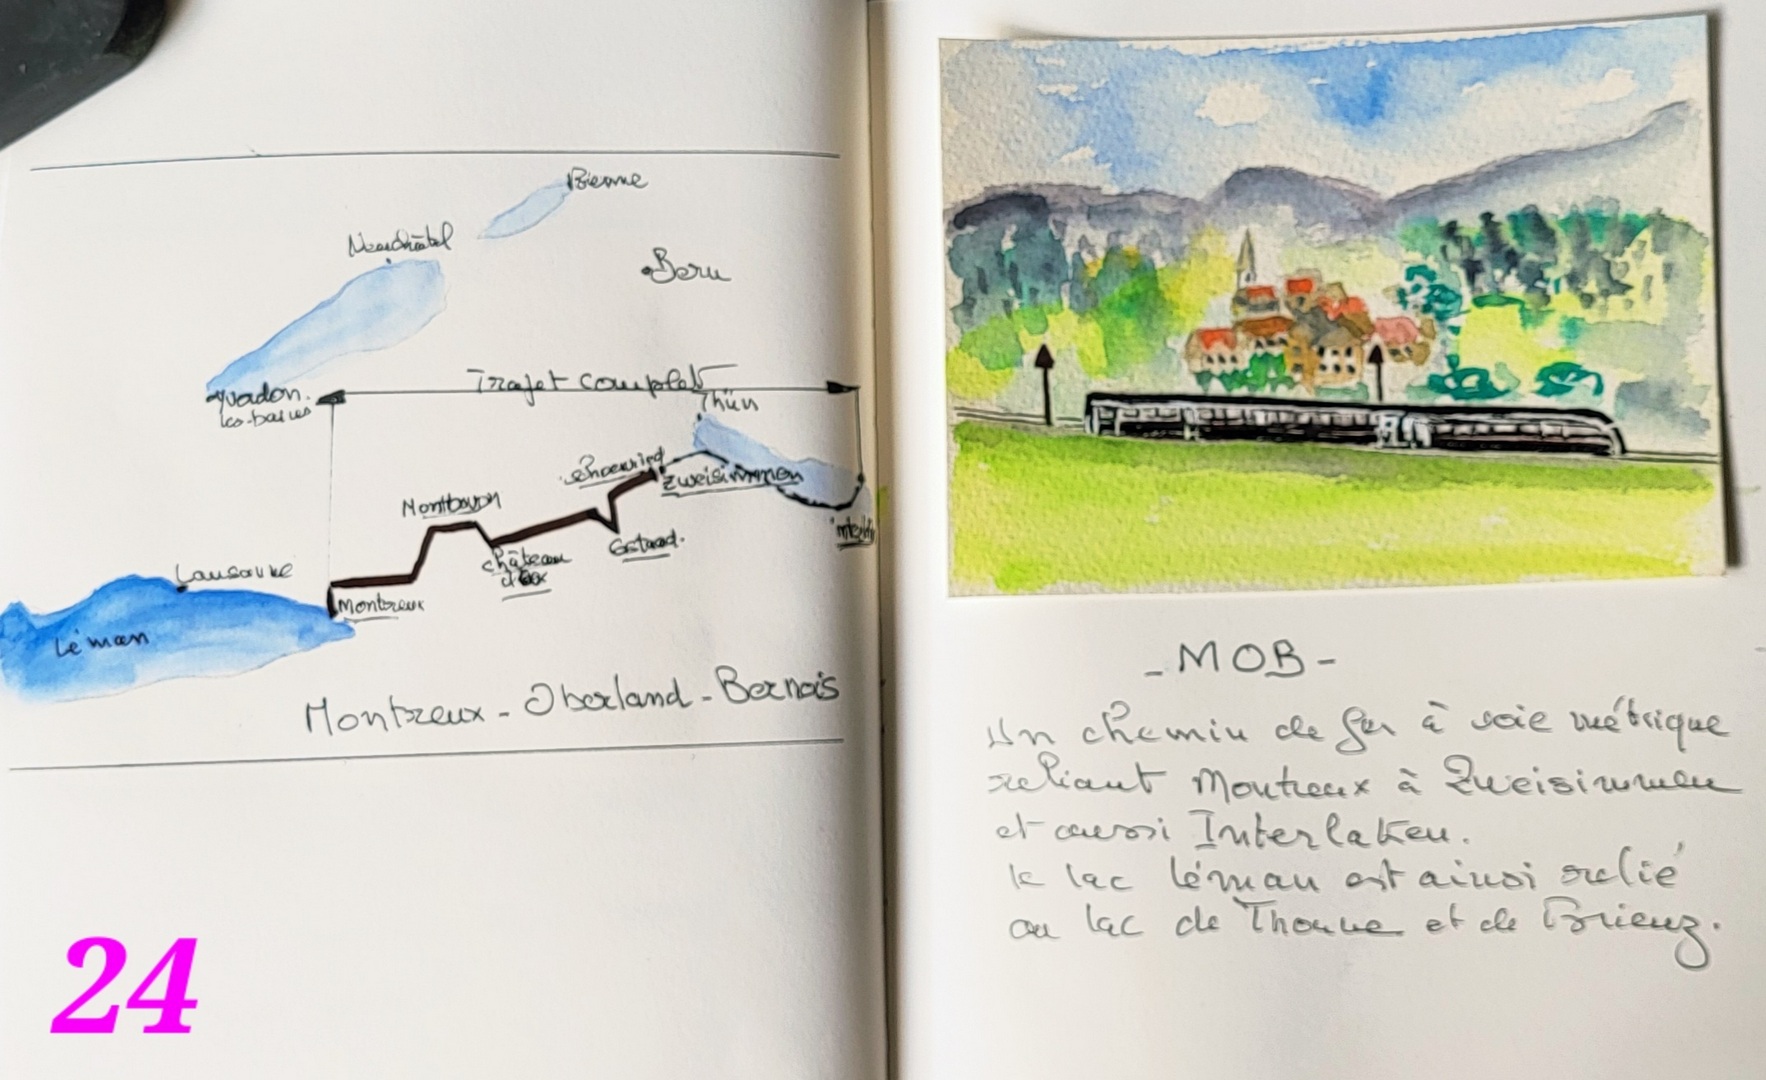 Bienne
Neuchâtel
Bern
Yverdon.
les-bains
Trajet complet
Thün
Zweisimmen
Montbovon
Gstaad.
château
d'Oex
Lausanne
Montreux
Léman
Montreux - Oberland - Bernois
24
- MOB -
Un chemin de fer à voie métrique
reliant Montreux à Zweisimmen
et aussi Interlaken.
le lac Léman est ainsi relié
au lac de Thoune et de Brienz.